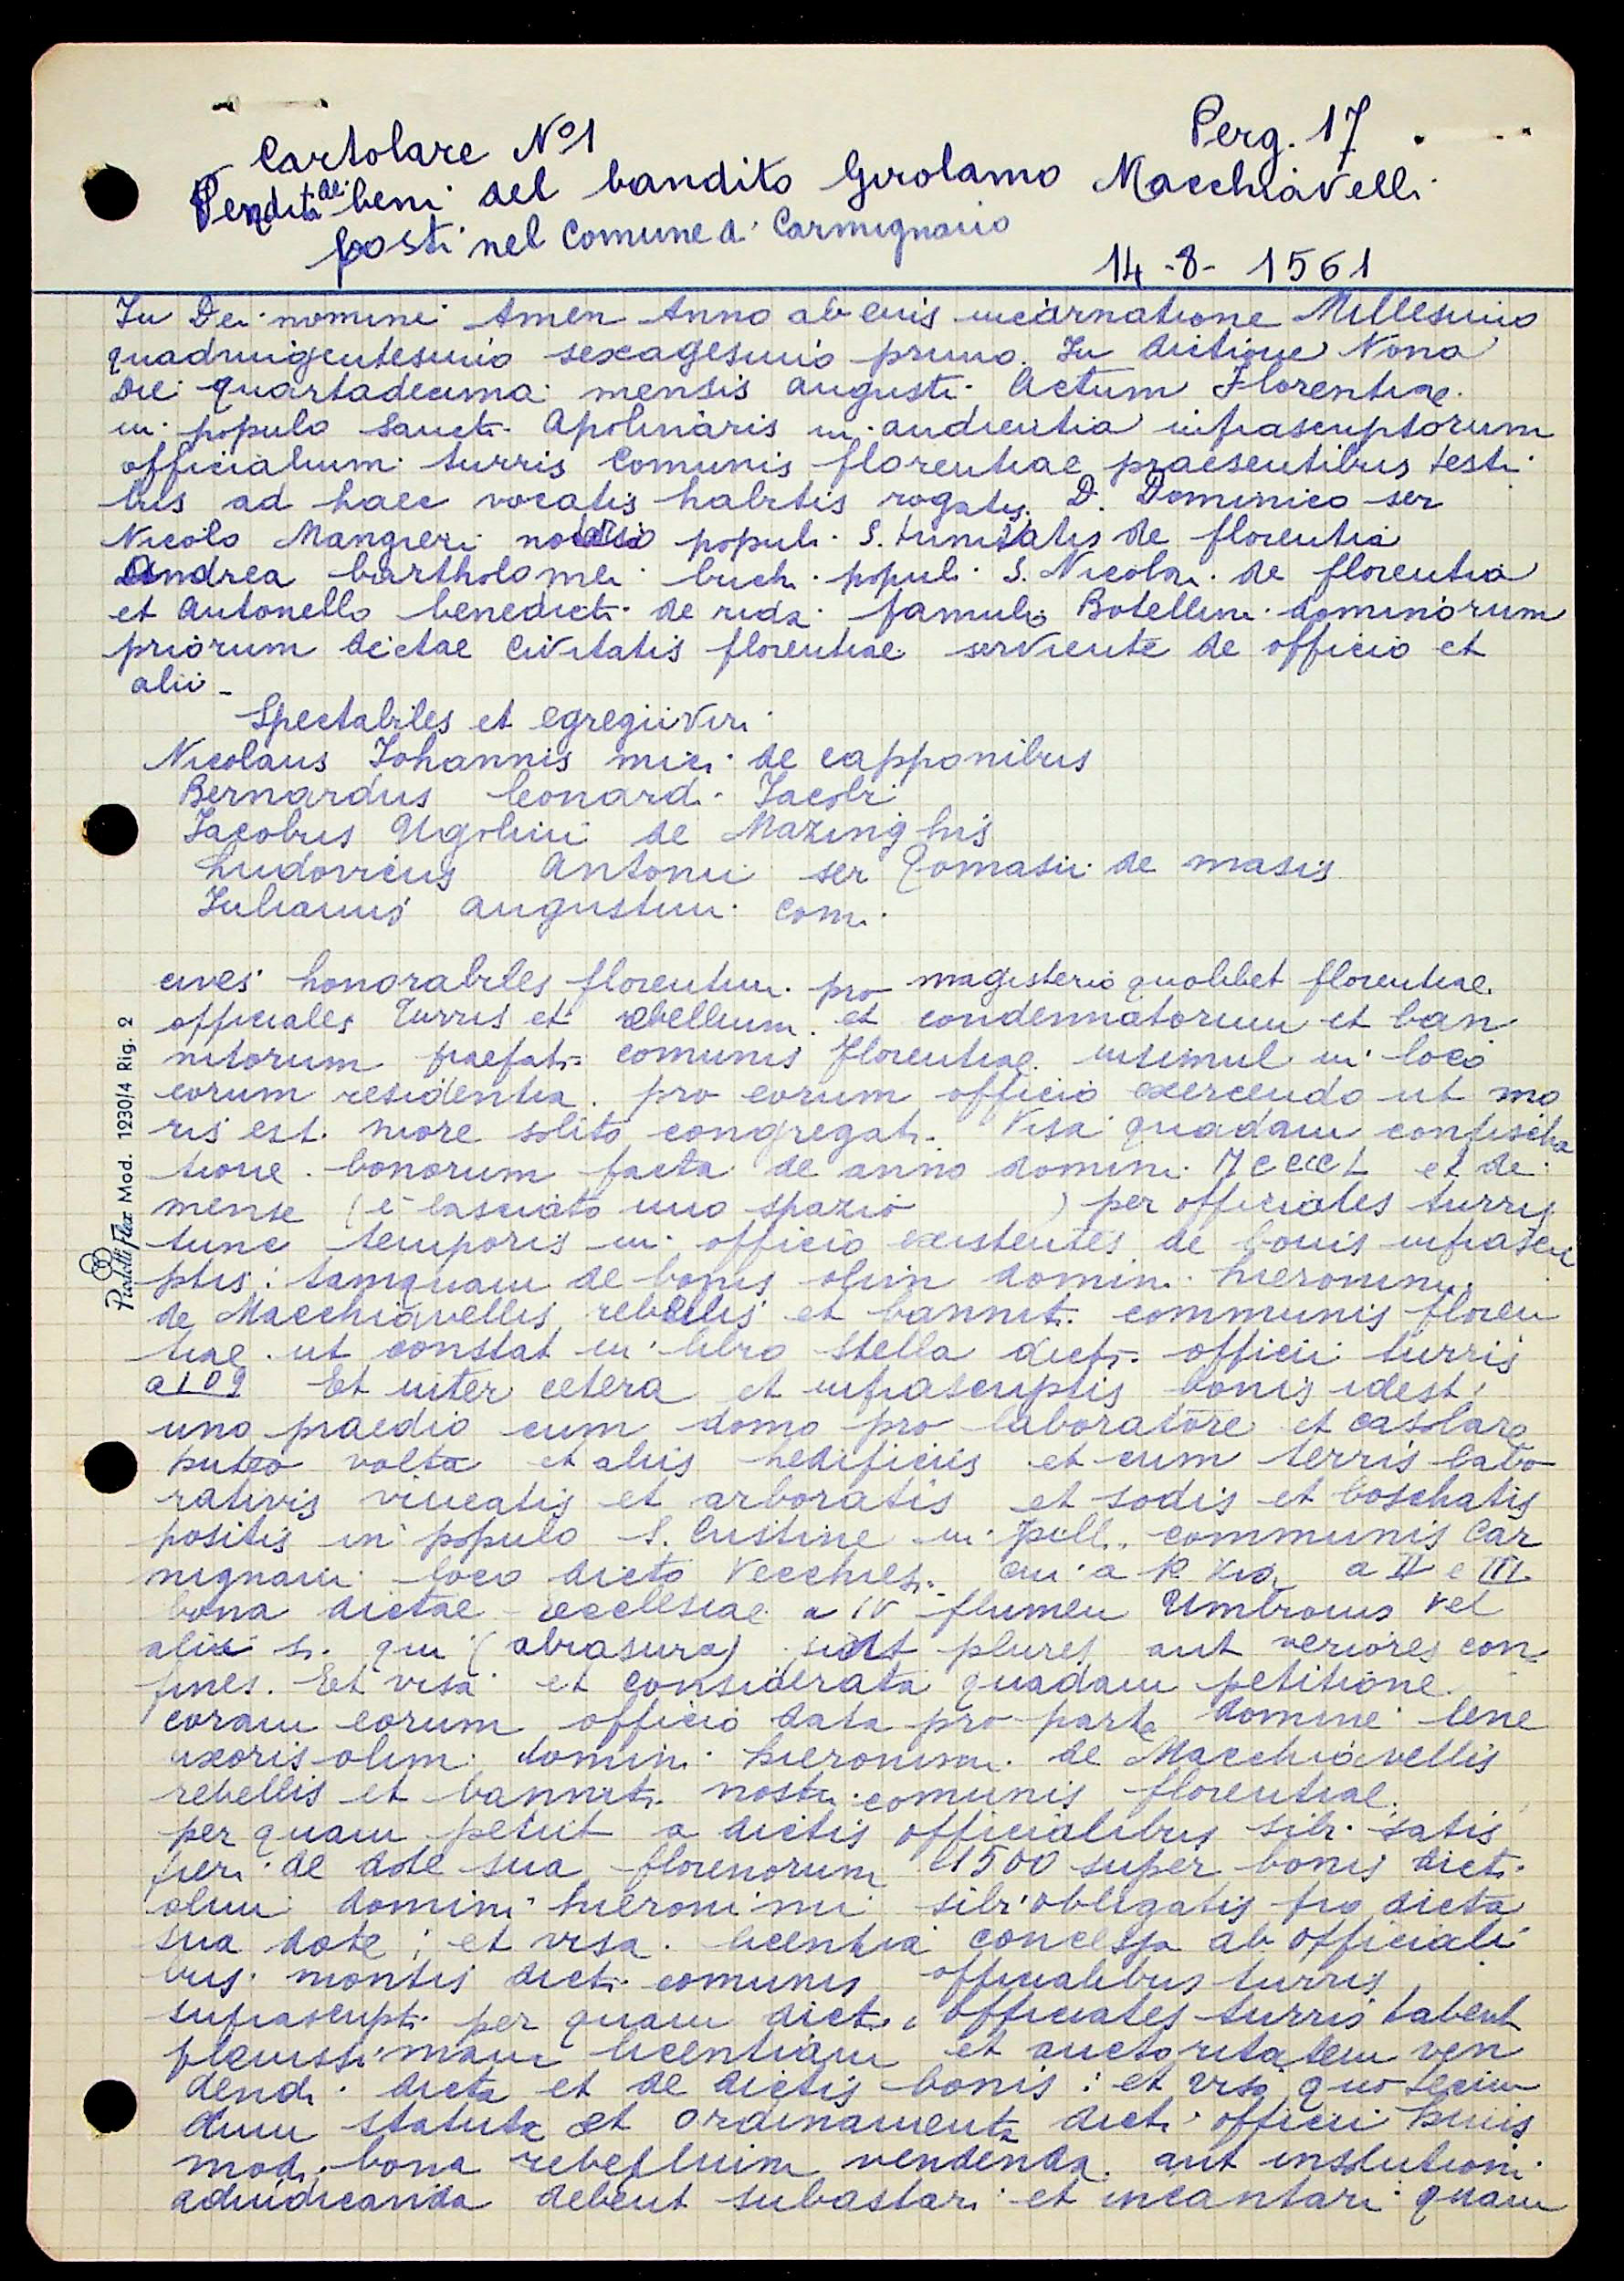 Perg. 17
Cartolare Nº1
Vendita dei beni del bandito Girolamo Macchiavelli
posti nel Comune di Carmignano
14-8-1561
In Dei nomine Amen Anno ab eius incarnatione Millesimo
quadringentesimo sexagesimo primo. In ditione Nona
die quartadecima mensis augusti. Actum Florentiae
in populo Sancti Apolinaris in audientia infrascriptorum
officialium turris Comunis florentiae praesentibus testi
bus ad haec vocatis habitis rogatis. D. Dominico ser
Nicolo Mangieri notario populi S. trinitatis de florentia
Andrea bartholomei buchi populi S. Nicolai de florentia
et Antonello benedicti de rida famuli Botellini dominorum
priorum dictae Civitatis florentiae serviente de officio et
alii -
Spectabiles et egregii viri
Nicolaus Johannis mici de capponibus
Bernardus leonardi Jacobi
Jacobus Ugolini de Mazinghis
Ludovicus Antonii ser Tomasii de masis
Julianus augustini Comi
cives honorabiles florentini pro magisterio quolibet florentiae
officiales Turris et rebellium et condennatorum et ban
nitorum praefati comunis Florentiae insimul in loco
eorum residentia pro eorum officio exercendo ut mo
ris est more solito congregati. Visa quadam confischa
tione bonorum facta de anno domini MCCCCL et de
mense (è lasciato uno spazio ) per officiales turris
tunc temporis in officio existentes de bonis infrascri
ptis: tamquam de bonis olim domini hieronimi
de Macchiavellis rebellis et banniti communis floren
tiae ut constat in libro stella dicti officii turris
a 109 Et inter cetera et infrascriptis bonis idest:
uno praedio cum domo pro laboratore et casolare
puteo volta et aliis hedificiis et cum terris labo
rativis vineatis et arboratis et sodis et boschatis
positis in populo S. Cristine in pill. communis Car
mignani loco dicto Vecchieti cui a P. Via a II e III
bona dictae ecclesiae a IV flumen Umbronis vel
alii si qui (abrasura) sunt plures aut veriores con
fines. Et visa et considerata quadam petitione
coram eorum officio data pro parte Domine lene
uxoris olim domini hieronimi de Macchiavellis
rebellis et banniti nostri comunis florentiae
per quam petiit a dictis officialibus sibi satis
fieri de dote sua florenorum 1500 super bonis dicti
olim domini hieronimi sibi obligatis pro dicta
sua dote; et visa licentia concessa ab officiali
bus montis dicti comunis officialibus turris
suprascripti per quam dicti officiales turris habent
plenissimam licentiam et auctoritatem ven
dendi dicta et de dictis bonis: et viso quo secun
dum statuta et ordinamenta dicti officii huius
modi bona rebellium vendenda aut insolutioni
adiudicanda debent subastari et incantari quam
Pigna Mod. 1230/4 Rig. 2